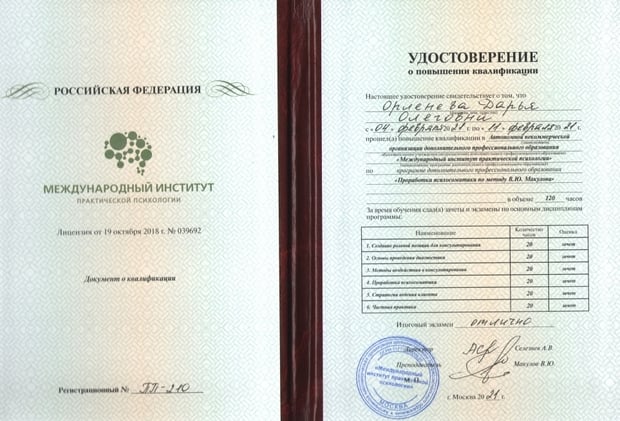 РОССИЙСКАЯ ФЕДЕРАЦИЯ
МЕЖДУНАРОДНЫЙ ИНСТИТУТ
ПРАКТИЧЕСКОЙ ПСИХОЛОГИИ
Лицензия от 19 октября 2018 г. № 039692
Документ о квалификации
Регистрационный № ПП-210
УДОСТОВЕРЕНИЕ
о повышении квалификации
Настоящее удостоверение свидетельствует о том, что
Орленева Дарья
Олеговна
с «04» февраля 2021 г. по «11» февраля 2021 г.
прошел(а) повышение квалификации в Автономной некоммерческой
организации дополнительного профессионального образования
«Международный институт практической психологии»
по программе дополнительного профессионального образования
«Проработка психосоматики по методу В.Ю. Макулова»
в объеме 120 часов
За время обучения сдал(а) зачеты и экзамены по основным дисциплинам
программы:
Наименование Количество часов Оценка
1. Создание ролевой позиции для консультирования 20 зачет
2. Основы проведения диагностики 20 зачет
3. Методы воздействия в консультировании 20 зачет
4. Проработка психосоматики 20 зачет
5. Стратегия ведения клиента 20 зачет
6. Частная практика 20 зачет
Итоговый экзамен отлично
Директор Селезнев А.В.
Преподаватель Макулов В.Ю.
«Международный
институт практической
психологии»
М.П.
МОСКВА
г. Москва 2021 г.